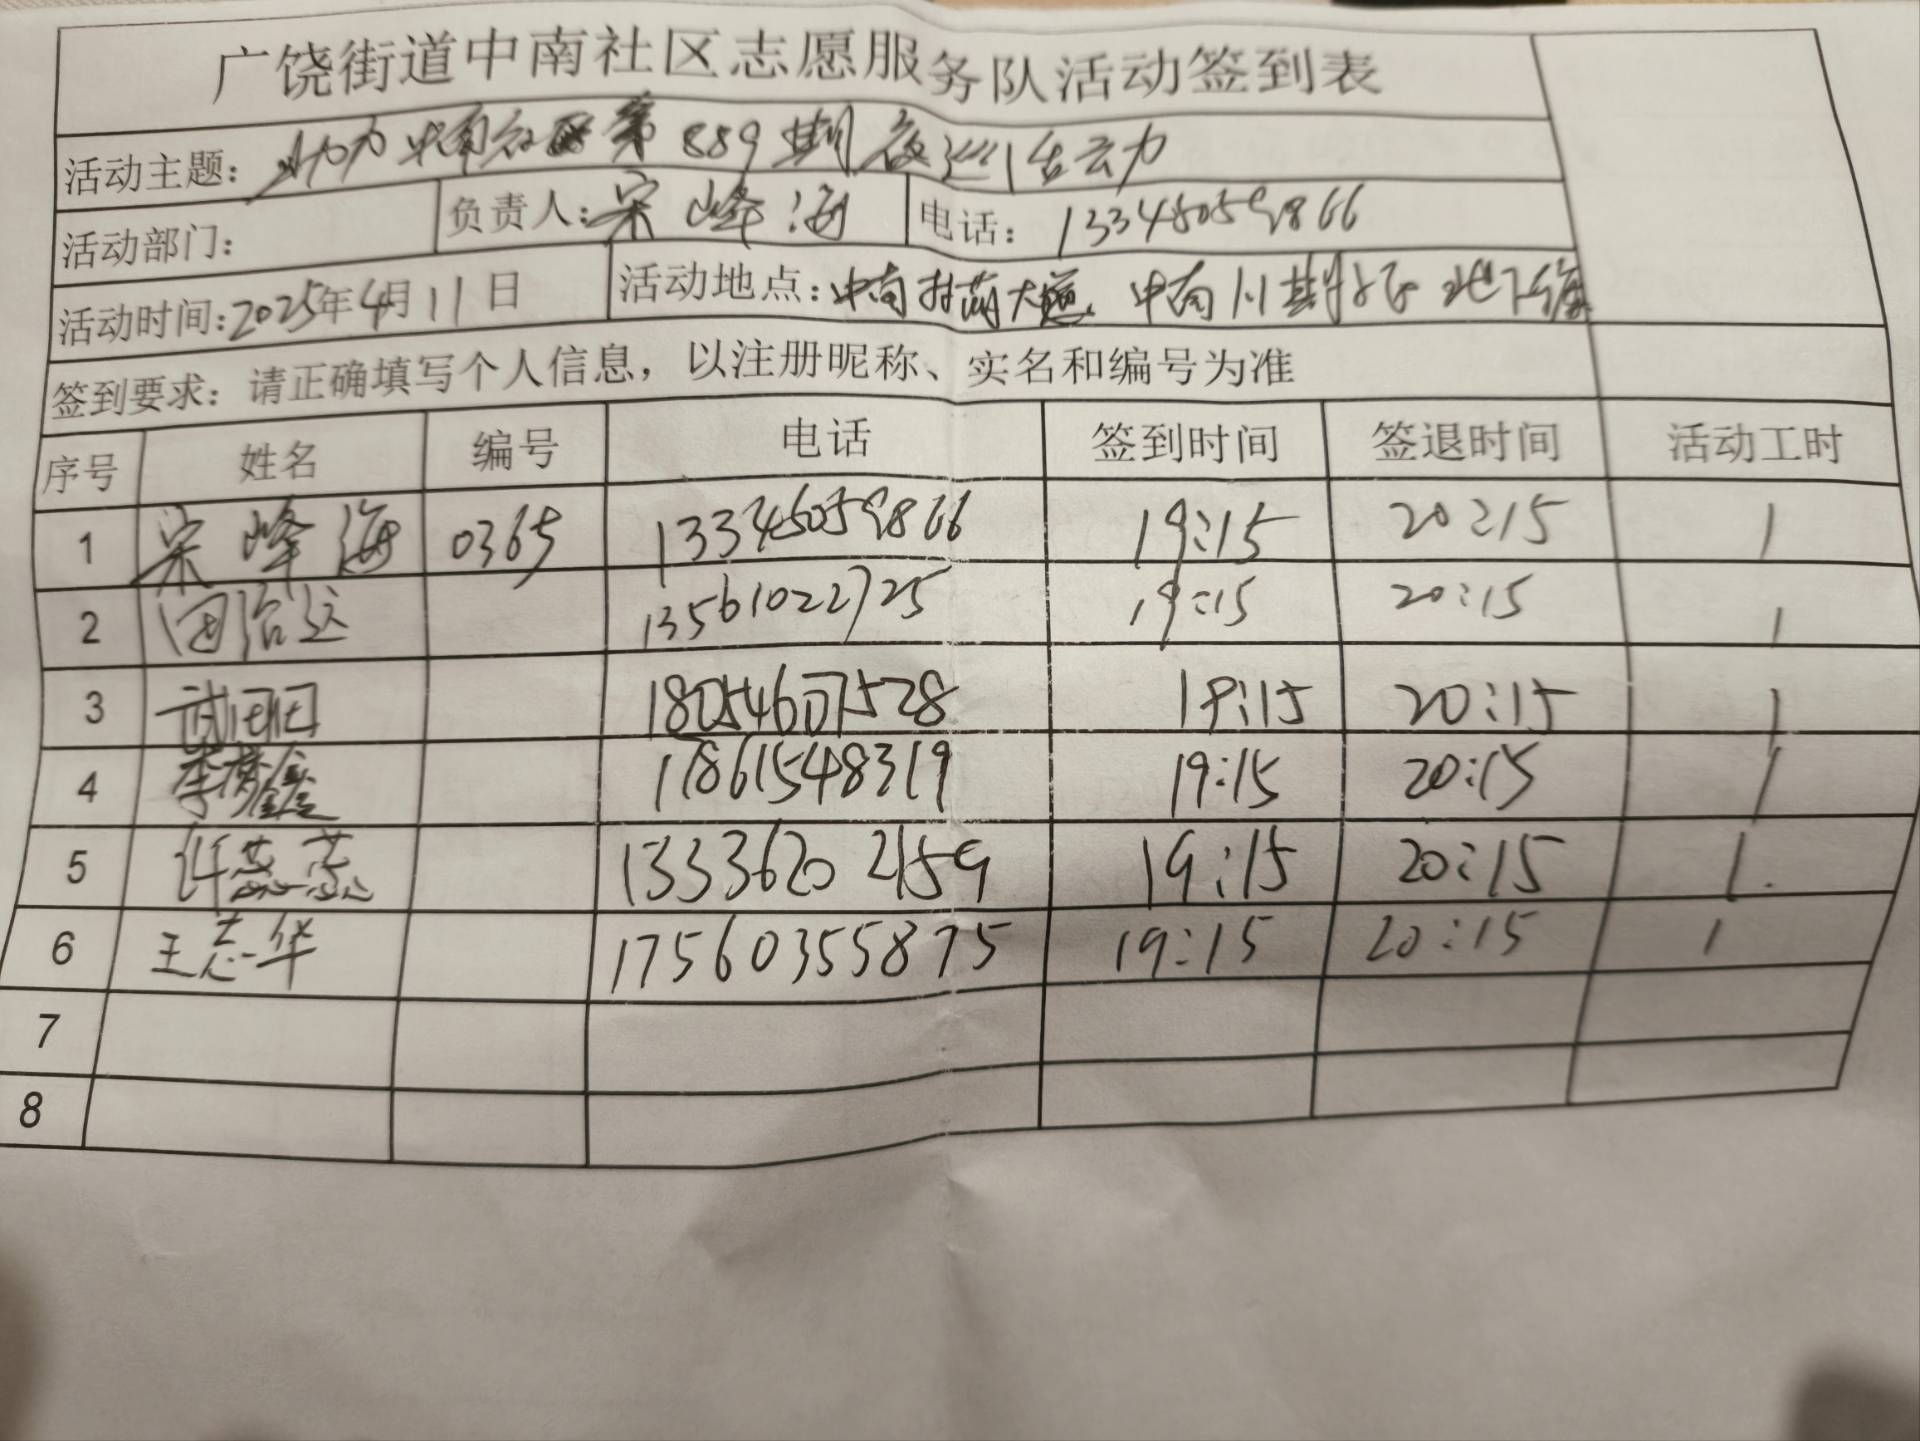 广饶街道中南社区志愿服务队活动签到表
活动主题: 助力中南社区第889期夜巡活动
活动部门: 负责人: 宋峰海 电话: 13345059866
活动时间: 2025年4月11日 活动地点: 中南 中南 期
签到要求: 请正确填写个人信息，以注册昵称、实名和编号为准
序号 姓名 编号 电话 签到时间 签退时间 活动工时
1 宋峰海 0365 13345059866 19:15 20:15 1
2 13561022725 19:15 20:15 1
3 18054607528 19:15 20:15 1
4 李梦鑫 17861548319 19:15 20:15 1
5 许蕊蕊 13336202159 19:15 20:15 1.
6 王志华 17560355875 19:15 20:15 1
7
8